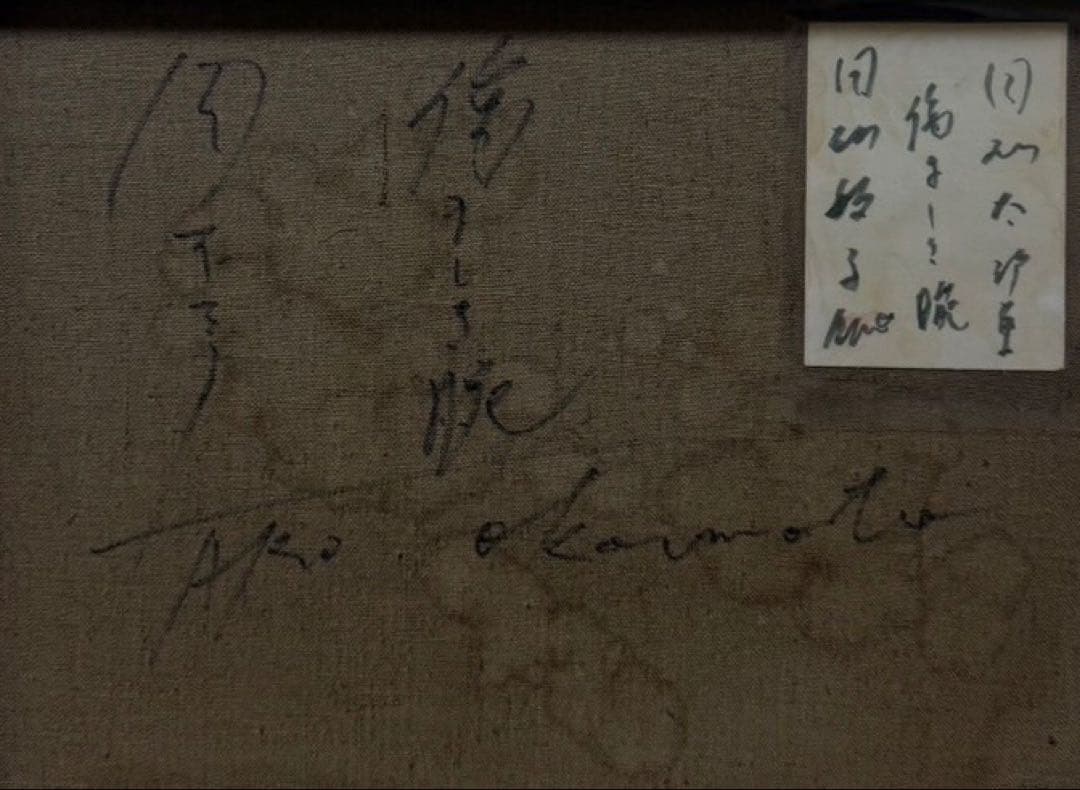 岡本太郎
傷ましき腕
岡本敏子
傷ましき腕
TARO okamoto